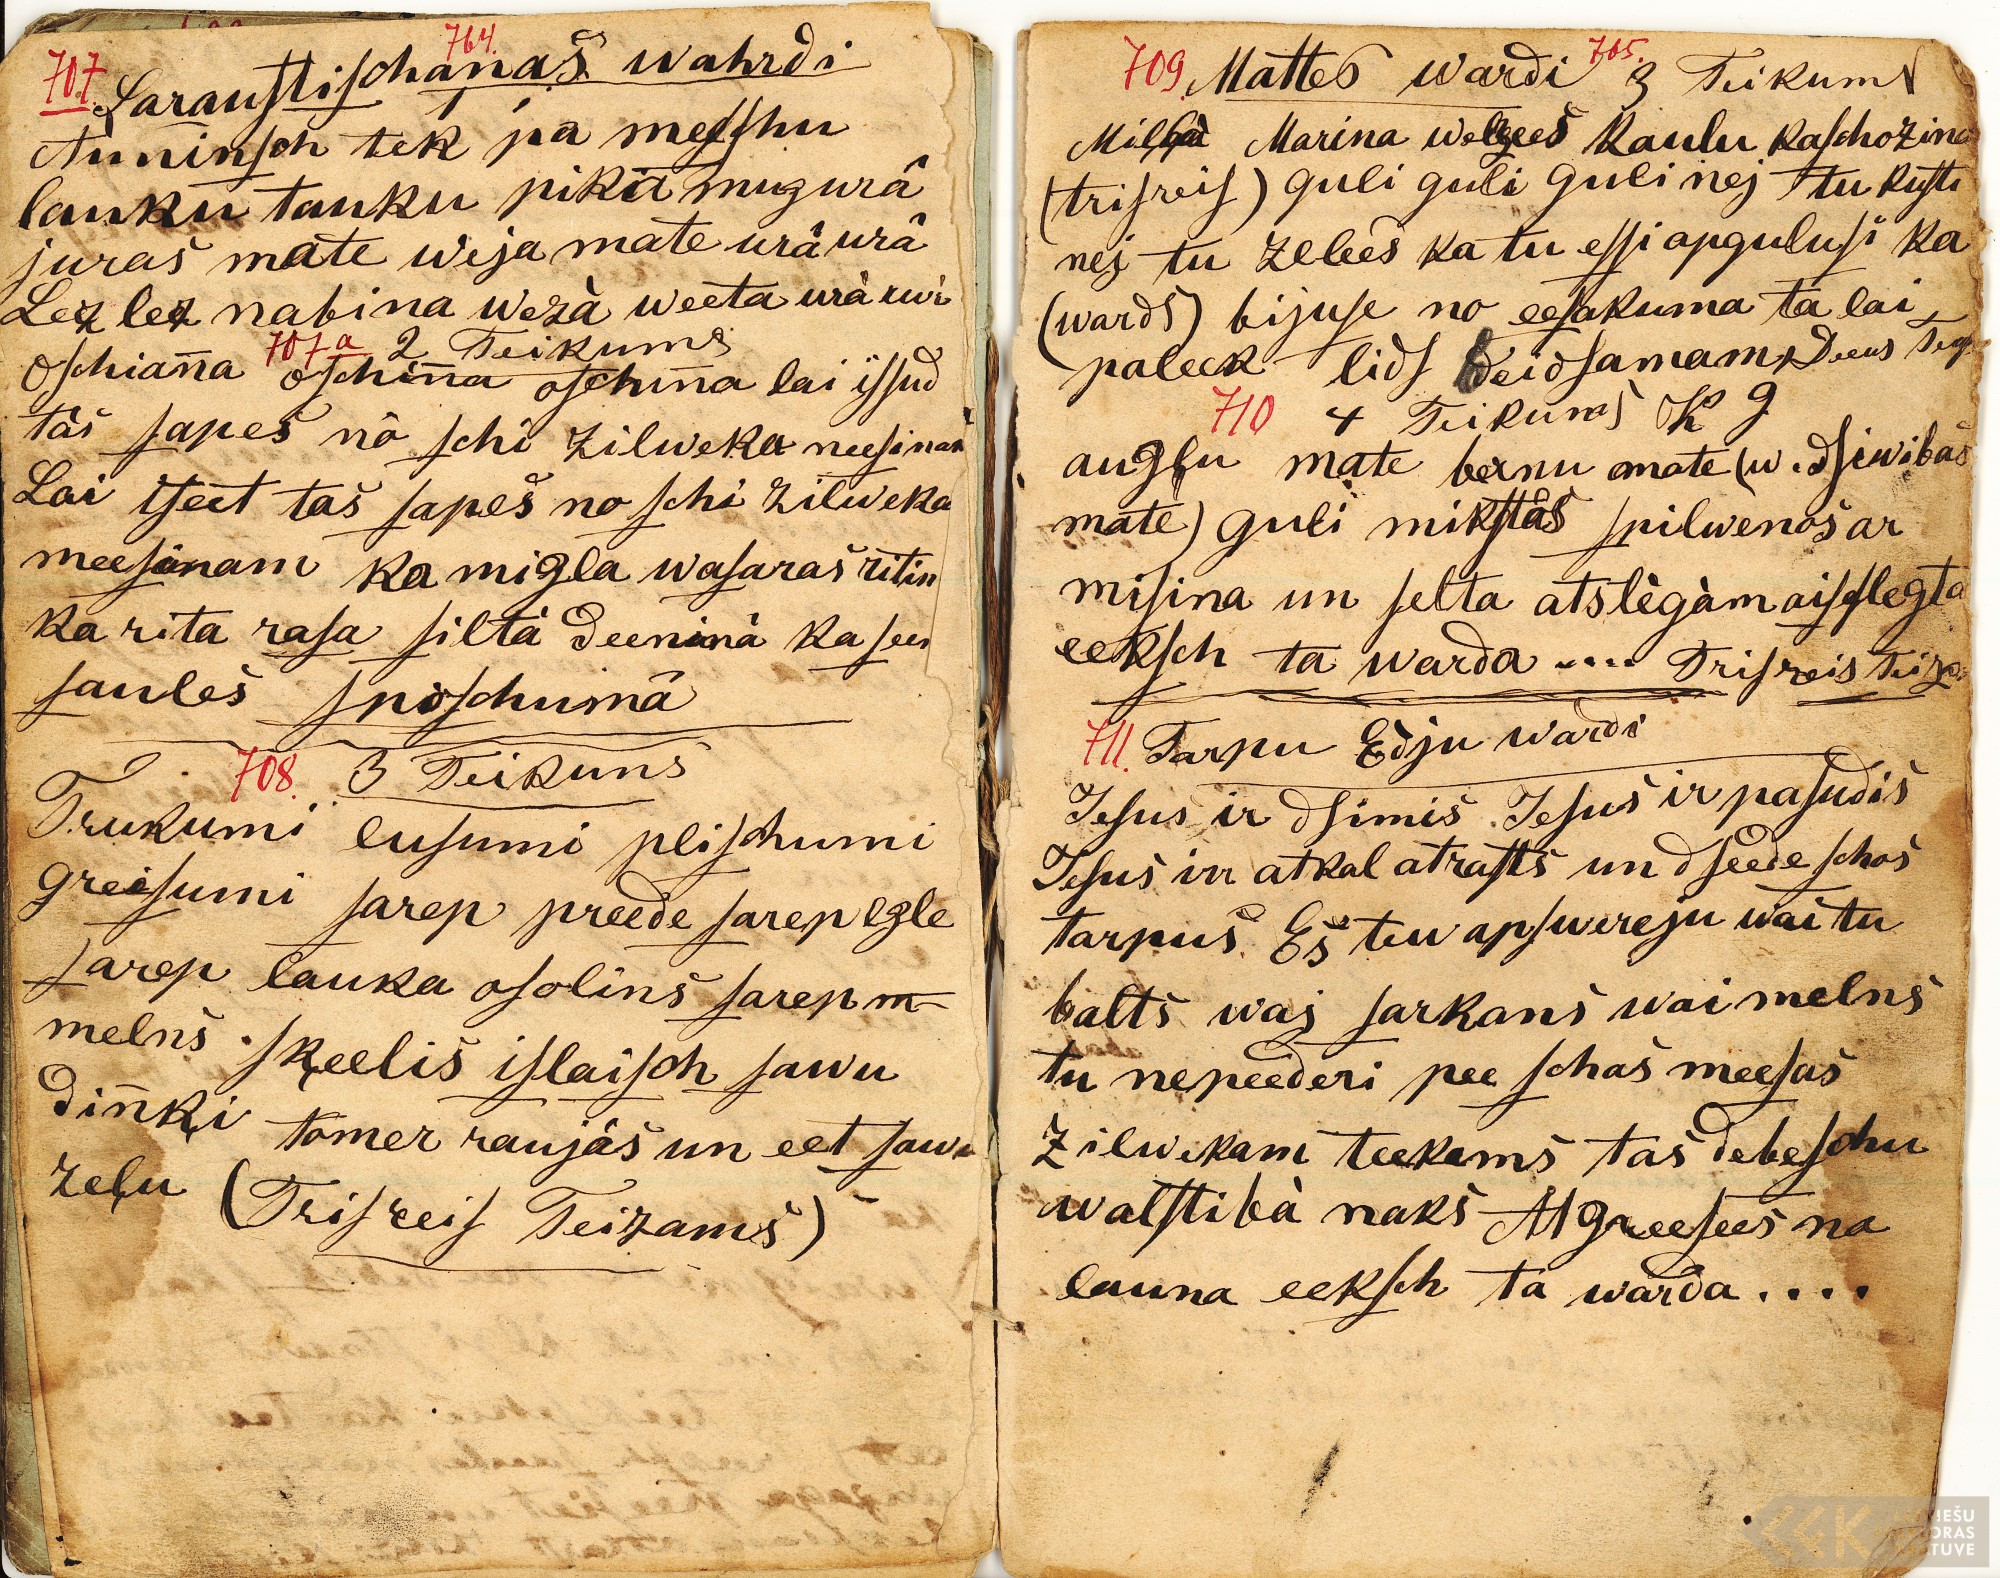 707. 764.
Saraustischanaš wahrdi
1
Auninsch tek pa meschu
lauku lauku pika mugurâ
juraš mate weja mate urâ urâ
Lez lez nabina wezà weeta urà
707a 2 Teikums
Oschian̄a oschin̄a oschin̄a lai issud
tàš sapeš nô schi zilweka
Lai iseet taš sapeš no schi zilweka
meesänam ka migla wasaraš ritin
ka rita rasa siltà deeninà ka
sauleš sposchumâ
708. 3 Teikums
Trukumi lusumi plischumi
greisumi sarep preede sarep egle
sarep lauka osolinš sarep m
melnš skeeliš islaisch sawu
din̄ķi tomer raujàš un eet sawu
zeļu (Trisreis Teizamš)
709. Mattes wardi 705. 3 Teikums
Milļa Marina welzeeš kaulu kaschozina
(trisreis) guli guli guli nej tu kusti
nej tu zeleeš ka tu essi apgulusi ka
(wardš) bijuse no eesakuma ta lai
paleek lids beidsamam Deenu
710 4 Teikums K 9
augļu mate bernu mate (w. dsiwibaš
mate) guli mikstàš spilwenoš ar
misina un selta atslègàm aisslegta
eeksch ta warda .... Trisreis
711. Tarpu Edju wardi
Jesus ir dsimis. Jesuš ir pasudis
Jesuš irr atkal atrastš un dseede schoš
tarpuš. Eš tew apswereju wai tu
baltš waj sarkanš wai melnš
tu nepeederi pee schaš meesaš
zilwekam teekamš taš debeschu
walstibà nakš Atgreeseeš no
launa eeksch ta warda ....